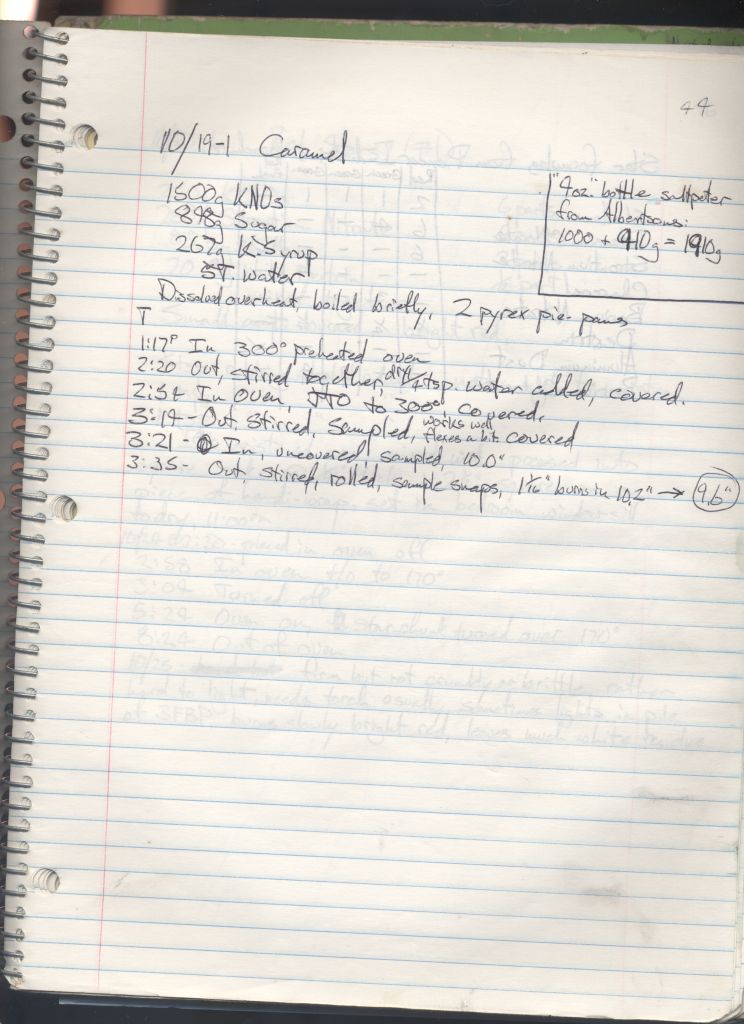 44
10/19-1 Caramel
"4oz." bottle saltpeter
from Albertsons:
1000 + 910g = 1910g
1500g KNO3
898g Sugar
267g K. Syrup
5T. water
Dissolved over heat, boiled briefly, 2 pyrex pie-pans
T
1:17P In 300° preheated oven
2:20 Out, stirred together, tsp. water added, covered.
2:54 In oven, to 300°, covered.
3:14 - Out, Stirred, Sampled, works well flexes a bit, covered
3:21 - In, uncovered, sampled, 10.0"
3:35 - Out, stirred, rolled, sample snaps, 1 1/16" burns in 10.2" → 9.6"